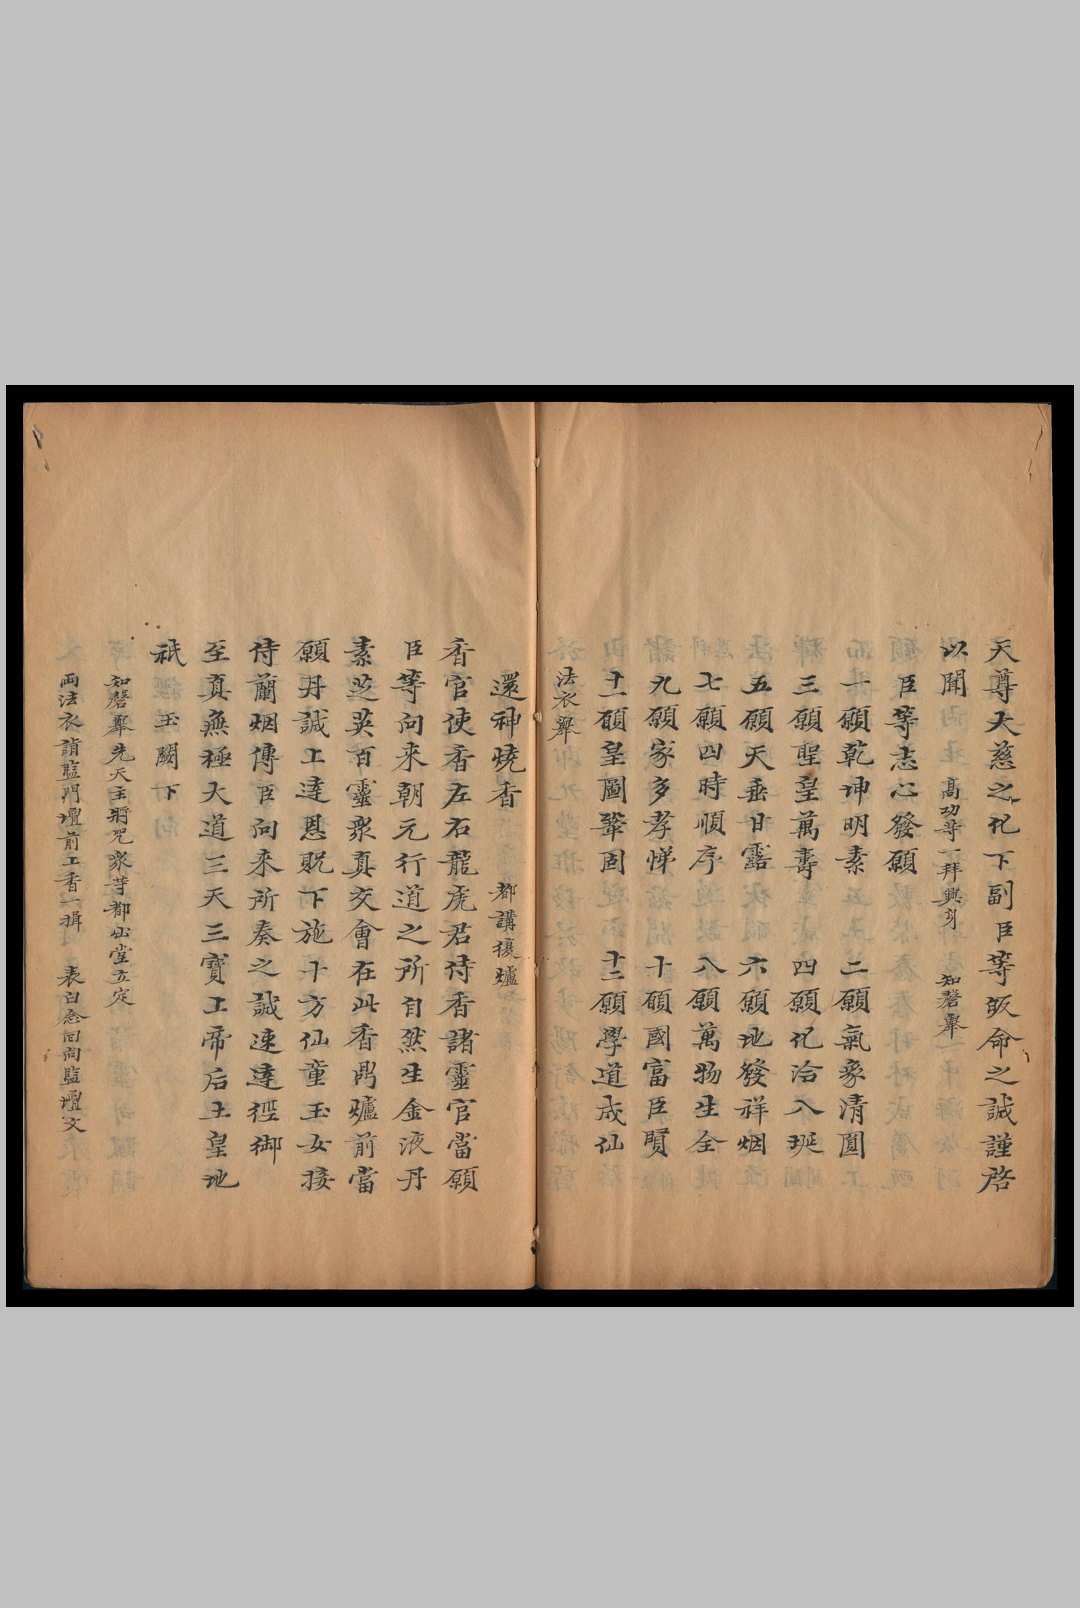 天尊大慈之化下副臣等皈命之誠謹啓
以聞　高功等一拜興身　知磬舉
臣等志心發願
一願乾坤明素　二願氣象清圓
三願聖皇萬壽　四願化洽八埏
五願天垂甘露　六願地發祥烟
七願四時順序　八願萬物生全
九願家多孝悌　十願國富臣賢
十一願皇圖鞏固　十二願學道成仙
法衣舉
還神燒香　都講復爐
香官使香左右龍虎君侍香諸靈官當願
臣等向来朝元行道之所自然生金液丹
素芝英百靈衆真交會在此香爐前當
願丹誠上達恩貺下施十方仙童玉女接
侍蘭烟傳臣向來所奏之誠速達徑御
至真無極大道三天三寶上帝后土皇地
祇玉闕下
知磬舉先天主將咒衆等都出堂立定
両法衣請監門壇前上香一揖　表白念回向監壇文